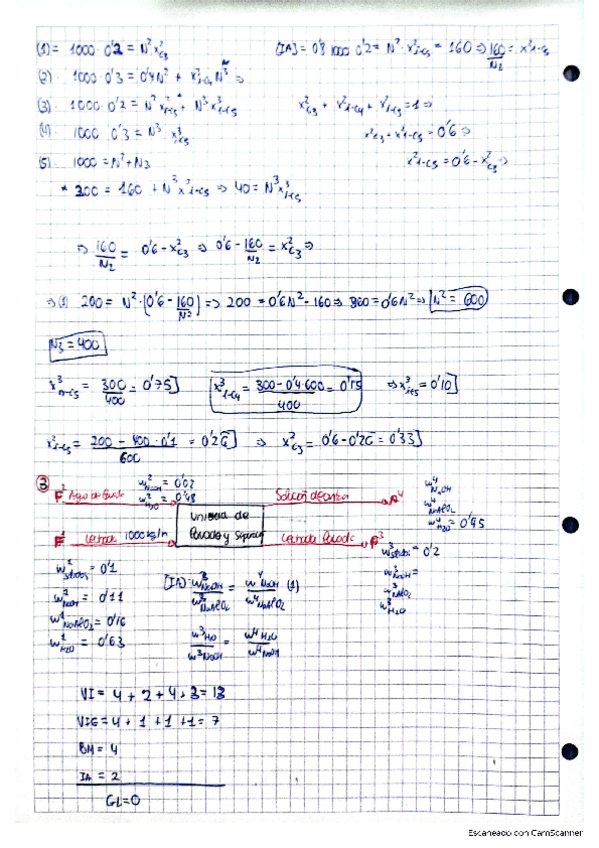 (1) = 1000 · 0'2 = N² x²c3
[IA] = 0'8 · 1000 · 0'2 = N² · x²i-c5 = 160 ⇒ 160/N2 = x²i-c5
(2) · 1000 · 0'3 = 0'4N² + x³i-c4 N³ ⇒
(3) · 1000 · 0'2 = N² x²i-c5 + N³ x³i-c5
x²c3 + x²i-c4 + x²i-c5 = 1 ⇒
(4) 1000 · 0'3 = N³ x³
x²c3 + x²i-c5 = 0'6 ⇒
(5) 1000 = N² + N3
x²i-c5 = 0'6 - x²c3 ⇒
* 200 = 160 + N³ x³i-c5 ⇒ 40 = N³ x³i-c5
⇒ 160/N2 = 0'6 - x²c3 ⇒ 0'6 - 160/N2 = x²c3 ⇒
⇒ (1) 200 = N² · [0'6 - 160/N²] ⇒ 200 = 0'6N² - 160 ⇒ 360 = 0'6N² ⇒ N² = 600
N3 = 400
x³n-c5 = 300/400 = 0'75
x³i-c4 = 300 - 0'4·600/400 = 0'15
⇒ x³i-c5 = 0'10
x²i-c5 = 200 - 400·0'1/600 = 0'26 ⇒ x²c3 = 0'6 - 0'26 = 0'33
3
F² Agua de lavado
w²NaOH = 0'02
w²H2O = 0'98
Solución
F⁴
w⁴NaOH
w⁴NaAlO2
w⁴H2O = 0'95
Unidad de
lavado y
F¹ Lechada 1000 kg/h
Lechada lavada F³
w³ = 0'2
w³NaOH =
w³NaAlO2
w³H2O
w¹ = 0'1
w¹NaOH = 0'11
w¹NaAlO2 = 0'16
w¹H2O = 0'63
[IA] · w³NaOH/w³NaAlO2 = w⁴NaOH/w⁴NaAlO2 (1)
w³H2O/w³NaOH = w⁴H2O/w⁴NaOH
VI = 4 + 2 + 4 + 3 = 13
VIE = 4 + 1 + 1 + 1 = 7
BM = 4
IA = 2
GL = 0
Escaneado con CamScanner